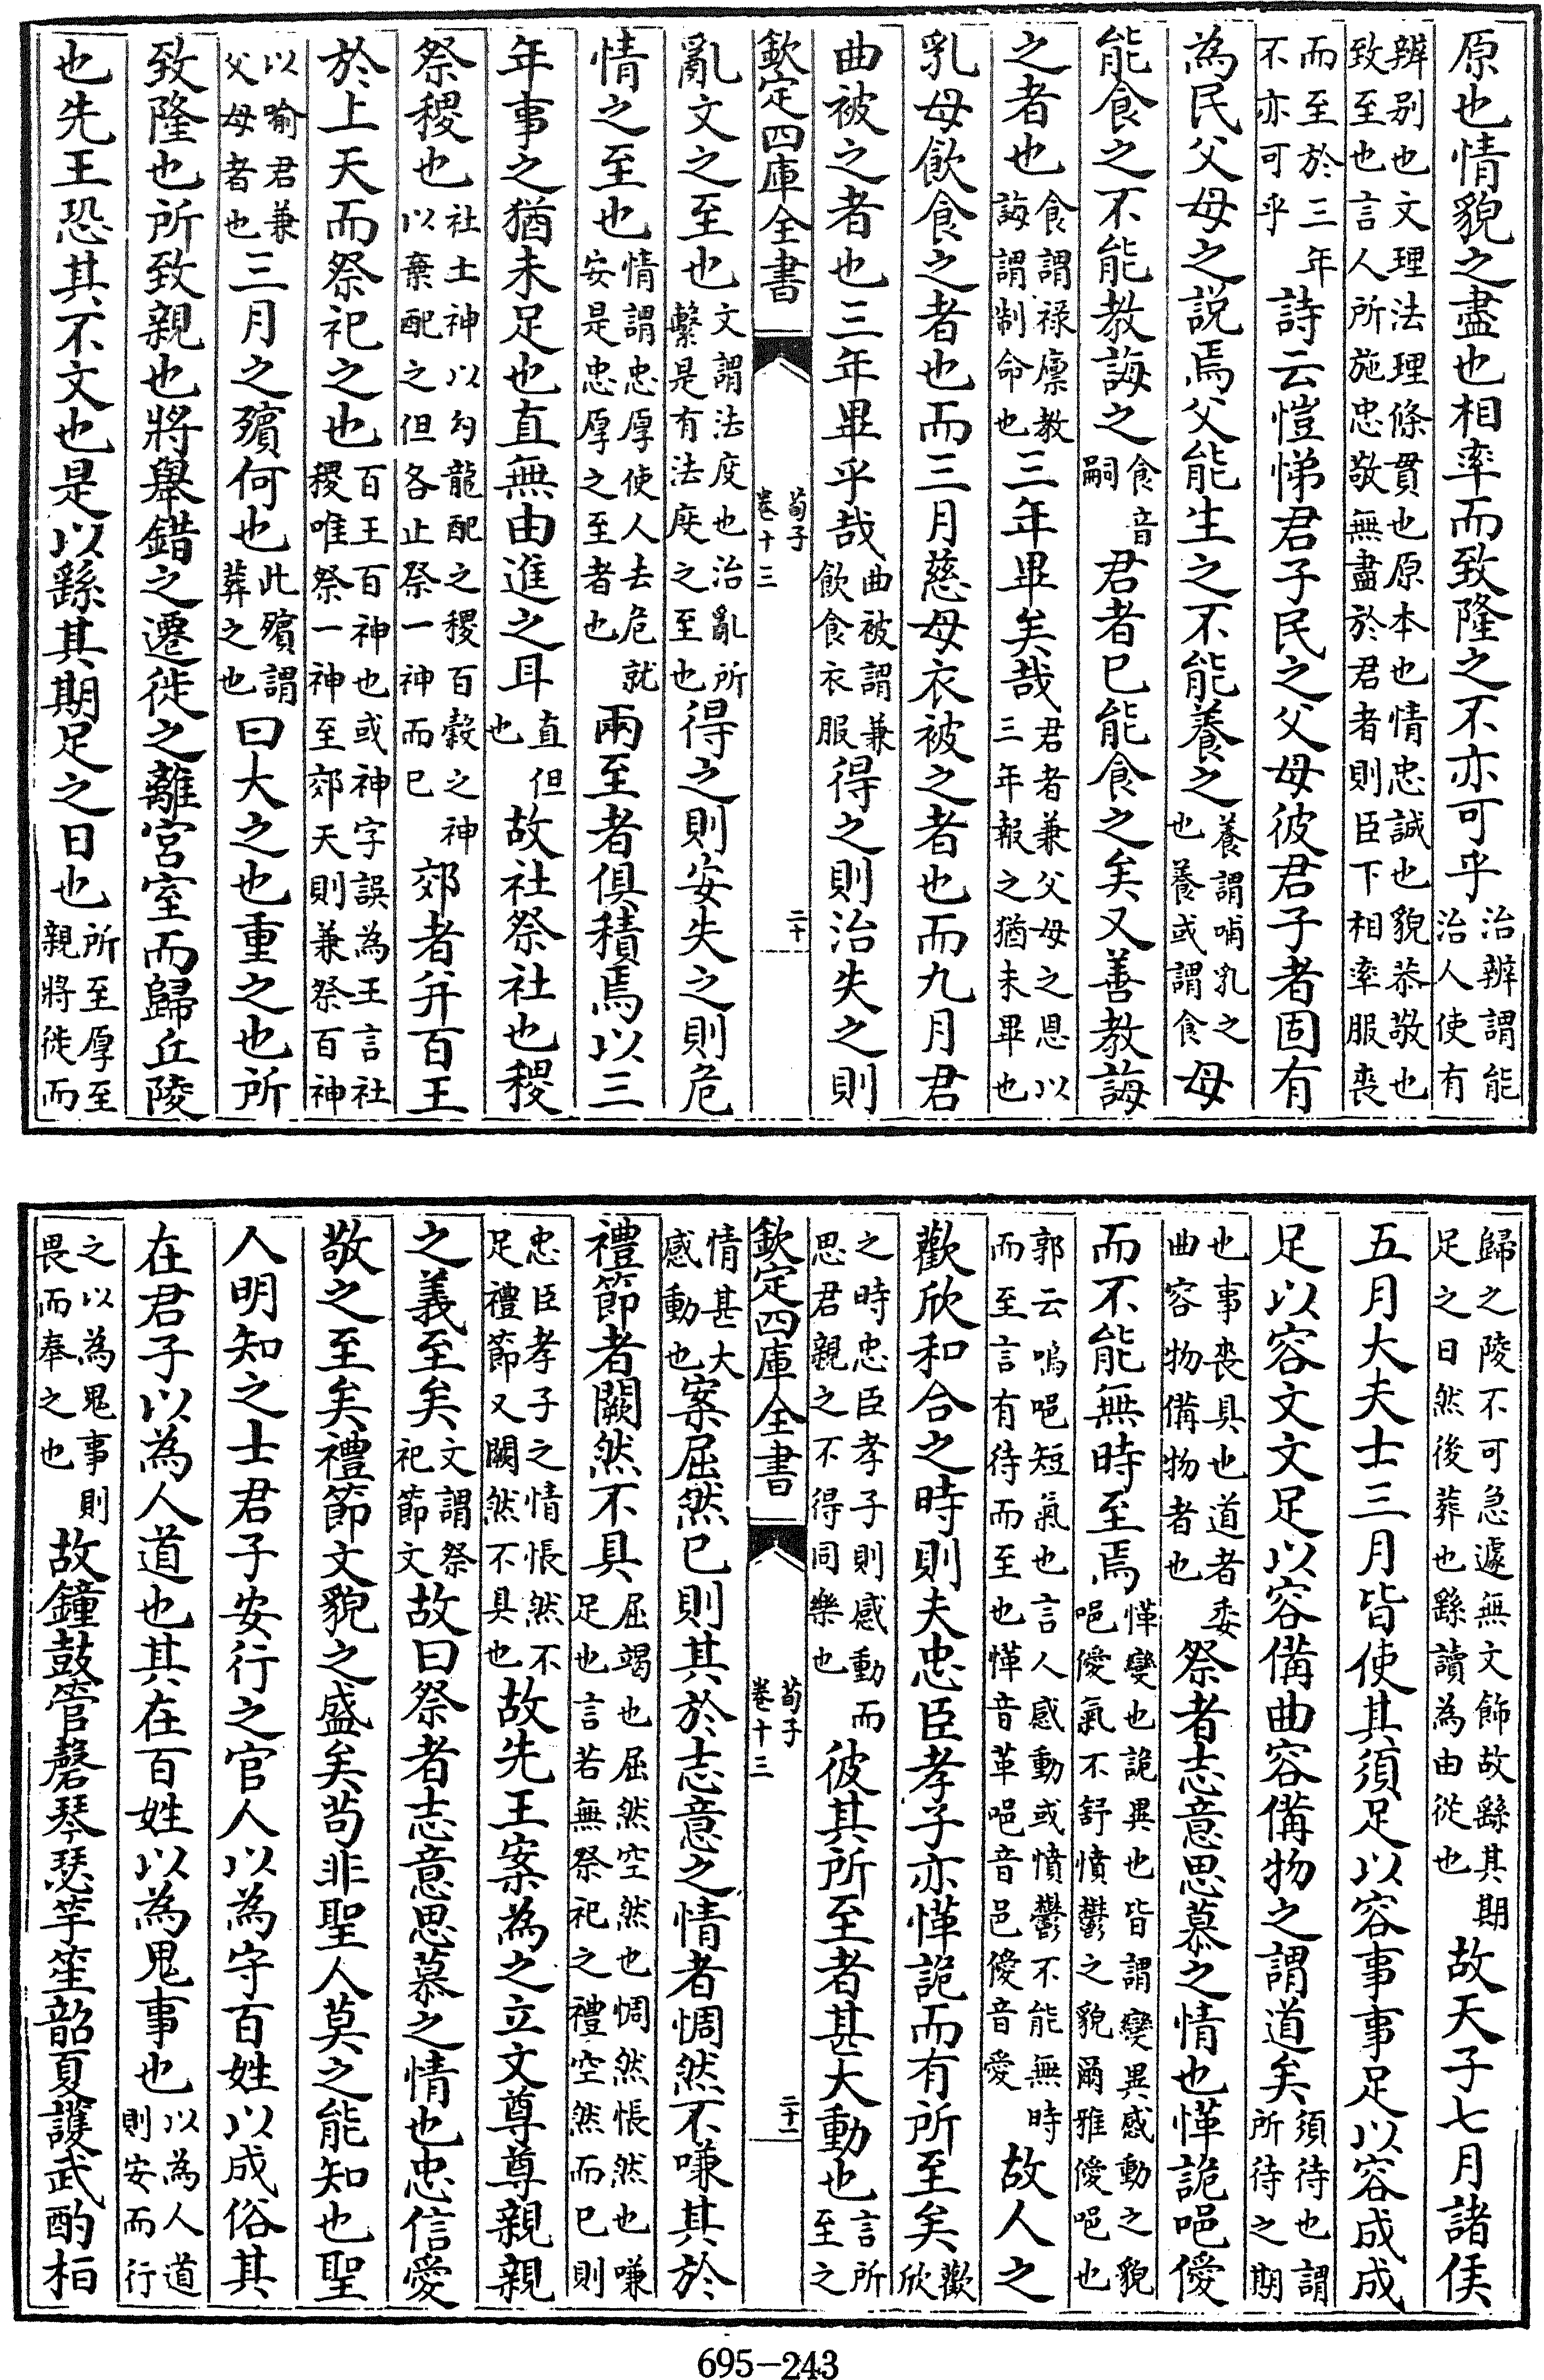 原也情貌之盡也相率而致隆之不亦可乎治辨謂能治人使有
辨别也文理法理條貫也原本也情忠誠也貌恭敬也致至也言人所施忠敬無盡於君者則臣下相率服喪
而至於三年不亦可乎詩云愷悌君子民之父母彼君子者固有
為民父母之説焉父能生之不能養之養謂哺乳之也養或謂食母
能食之不能教誨之食音嗣君者已能食之矣又善教誨
之者也食謂禄廪教誨謂制命也三年畢矣哉君者兼父母之恩以三年報之猶未畢也
乳母飲食之者也而三月慈母衣被之者也而九月君
曲被之者也三年畢乎哉曲被謂兼飲食衣服得之則治失之則
欽定四庫全書 荀子 卷十三 二十
亂文之至也文謂法度也治亂所繫是有法度之至也得之則安失之則危
情之至也情謂忠厚使人去危就安是忠厚之至者也兩至者俱積焉以三
年事之猶未足也直無由進之耳直但也故社祭社也稷
祭稷也社土神以勾龍配之稷百穀之神以棄配之但各止祭一神而已郊者并百王
於上天而祭祀之也百王百神也或神字誤為王言社稷唯祭一神至郊天則兼祭百神
以喻君兼父母者也三月之殯何也此殯謂葬之也曰大之也重之也所
致隆也所致親也將舉錯之遷徙之離宫室而歸丘陵
也先王恐其不文也是以繇其期足之日也所至厚至親將徙而
歸之陵不可急遽無文飾故繇其期足之日然後葬也繇讀為由從也故天子七月諸侯
五月大夫士三月皆使其須足以容事事足以容成成
足以容文文足以容備曲容備物之謂道矣須待也謂所待之期
也事喪具也道者委曲容物備物者也祭者志意思慕之情也愅詭唈僾
而不能無時至焉愅變也詭異也皆謂變異感動之貌唈僾氣不舒憤鬱之貌爾雅僾唈也
郭云嗚唈短氣也言人感動或憤鬱不能無時而至言有待而至也愅音革唈音邑僾音愛故人之
歡欣和合之時則夫忠臣孝子亦愅詭而有所至矣歡欣
之時忠臣孝子則感動而思君親之不得同樂也彼其所至者甚大動也言所至之
欽定四庫全書 荀子 卷十三 二十一
情甚大感動也案屈然已則其於志意之情者惆然不嗛其於
禮節者闕然不具屈竭也屈然空然也惆然悵然也嗛足也言若無祭祀之禮空然而已則
忠臣孝子之情悵然不足禮節又闕然不具也故先王案為之立文尊尊親親
之義至矣文謂祭祀節文故曰祭者志意思慕之情也忠信愛
敬之至矣禮節文貌之盛矣茍非聖人莫之能知也聖
人明知之士君子安行之官人以為守百姓以成俗其
在君子以為人道也其在百姓以為鬼事也以為人道則安而行
之以為鬼事則畏而奉之也故鐘鼓管磬琴瑟竽笙韶夏護武酌桓
695-243